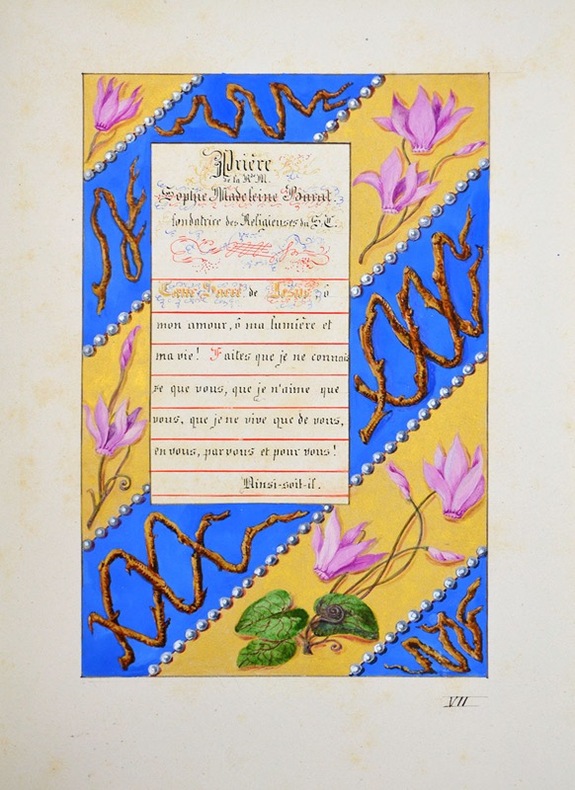 Prière
de la Rde M.
Sophie Madeleine Barat
fondatrice des Religieuses du S. C.
Cœur Sacré de Jésus ô
mon amour, ô ma lumière et
ma vie! Faites que je ne connais
se que vous, que je n'aime que
vous, que je ne vive que de vous,
en vous, par vous et pour vous!
Ainsi-soit-il.
VII